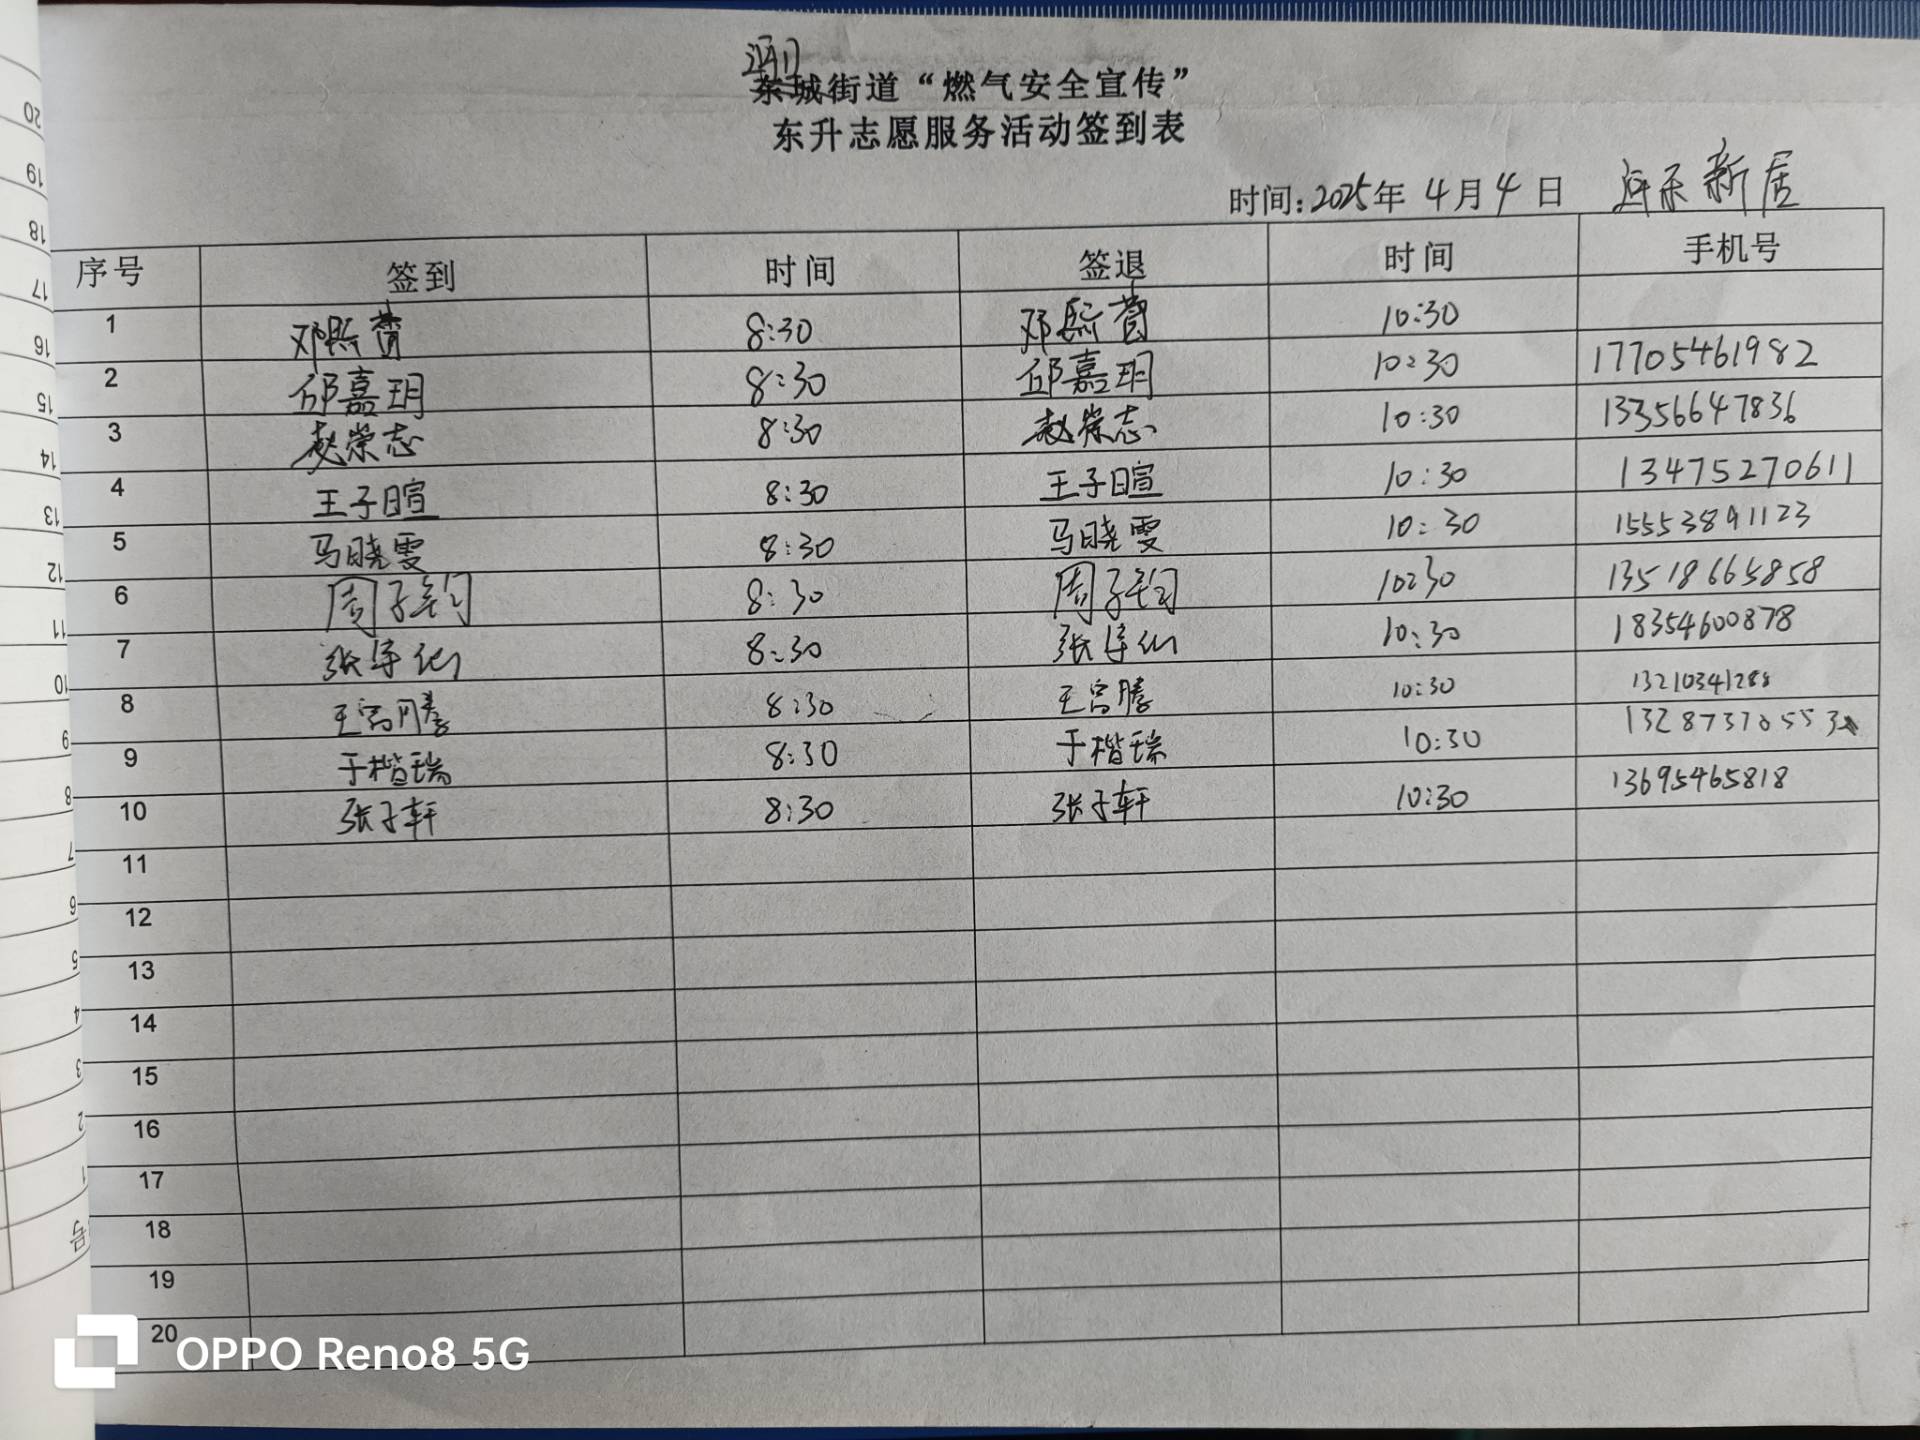 东城街道“燃气安全宣传”
东升志愿服务活动签到表
时间: 2025年 4月 4日 新居
序号 签到 时间 签退 时间 手机号
1 邓熙蕾 8:30 邓熙蕾 10:30
2 邱嘉玥 8:30 邱嘉玥 10:30 17705461982
3 赵崇志 8:30 赵崇志 10:30 13356647836
4 王子暄 8:30 王子暄 10:30 13475270611
5 马晓雯 8:30 马晓雯 10:30 15553891123
6 周子钧 8:30 周子钧 10:30 13518665858
7 张 8:30 张 10:30 18354600878
8 王富腾 8:30 王富腾 10:30 13210341288
9 于楷瑞 8:30 于楷瑞 10:30 1328737055
10 张子轩 8:30 张子轩 10:30 13695465818
11
12
13
14
15
16
17
18
19
20
OPPO Reno8 5G
20
19
18
17
16
15
14
13
12
11
10
9
8
7
6
5
4
3
2
1
号